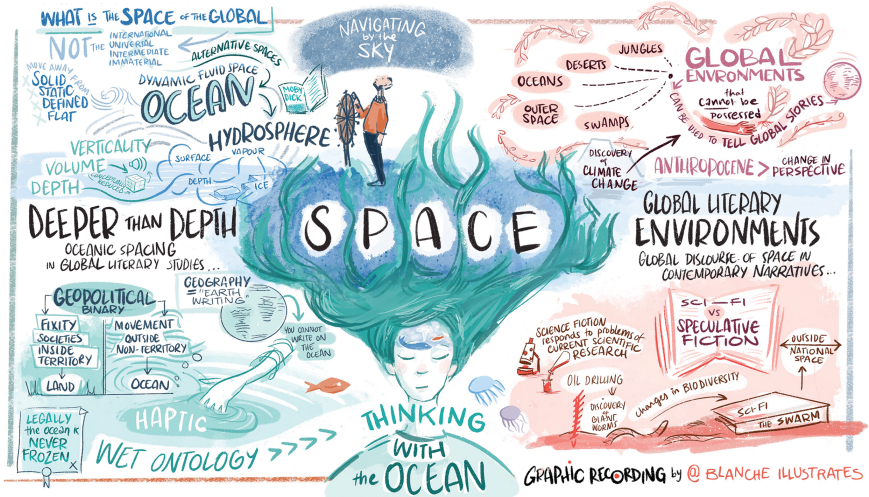 WHAT IS THE SPACE OF THE GLOBAL
NOT THE
INTERNATIONAL
UNIVERSAL
INTERMEDIATE
IMMATERIAL
ALTERNATIVE SPACES
MOVE AWAY FROM
SOLID
STATIC
DEFINED
FLAT
DYNAMIC FLUID SPACE
OCEAN
MOBY
DICK
HYDROSPHERE:
VERTICALITY
VOLUME
DEPTH
SURFACE
VAPOUR
DEPTH
ICE
DEEPER THAN DEPTH
OCEANIC SPACING
IN GLOBAL LITERARY STUDIES...
GEOPOLITICAL
BINARY
FIXITY
SOCIETIES
INSIDE
TERRITORY
LAND
MOVEMENT
OUTSIDE
NON-TERRITORY
OCEAN
GEOGRAPHY
= "EARTH
WRITING"
YOU CANNOT
WRITE ON
THE
OCEAN
HAPTIC
LEGALLY
the OCEAN IS
NEVER
FROZEN
X
WET ONTOLOGY >>>>>
NAVIGATING
by the
SKY
SPACE
THINKING
WITH
the OCEAN
JUNGLES
DESERTS
OCEANS
OUTER
SPACE
SWAMPS
GLOBAL
ENVIRONMENTS
that
cannot be
possessed
CAN BE USED TO TELL GLOBAL STORIES
DISCOVERY
of
CLIMATE
CHANGE
ANTHROPOCENE > CHANGE IN
PERSPECTIVE
GLOBAL LITERARY
ENVIRONMENTS
GLOBAL DISCOURSE OF SPACE IN
CONTEMPORARY NARRATIVES...
SCI-FI
VS
SPECULATIVE
FICTION
SCIENCE FICTION
responds to problems of
CURRENT SCIENTIFIC
RESEARCH
OUTSIDE
NATIONAL
SPACE
OIL DRILLING
DISCOVERY
of
GIANT
WORMS
changes in BIODIVERSITY
SCI-FI
THE SWARM
GRAPHIC RECORDING by @ BLANCHE ILLUSTRATES